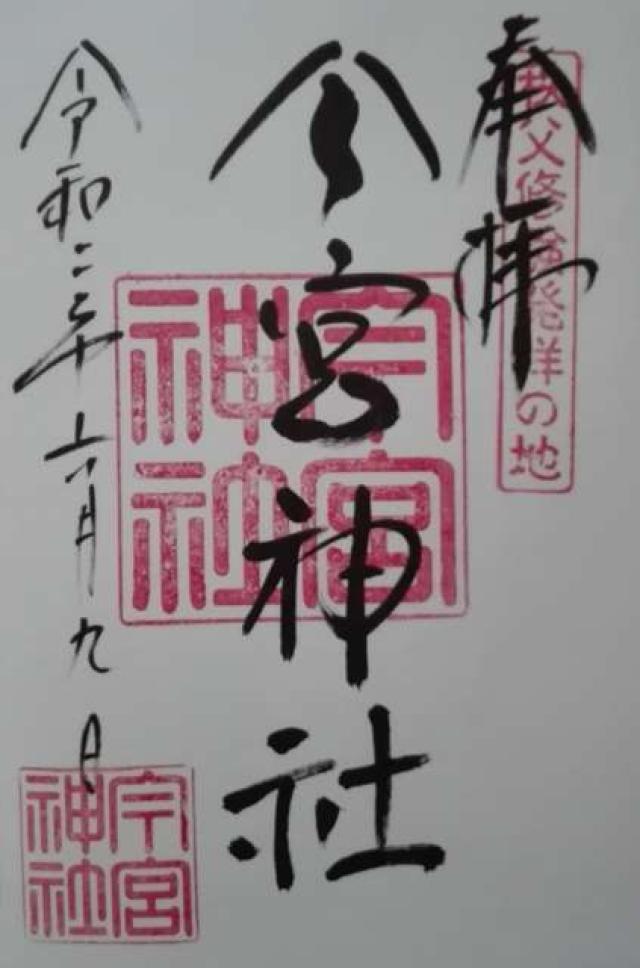 奉拝
秩父修験発祥の地
今宮神社
今宮神社
令和二年六月九日
今宮神社